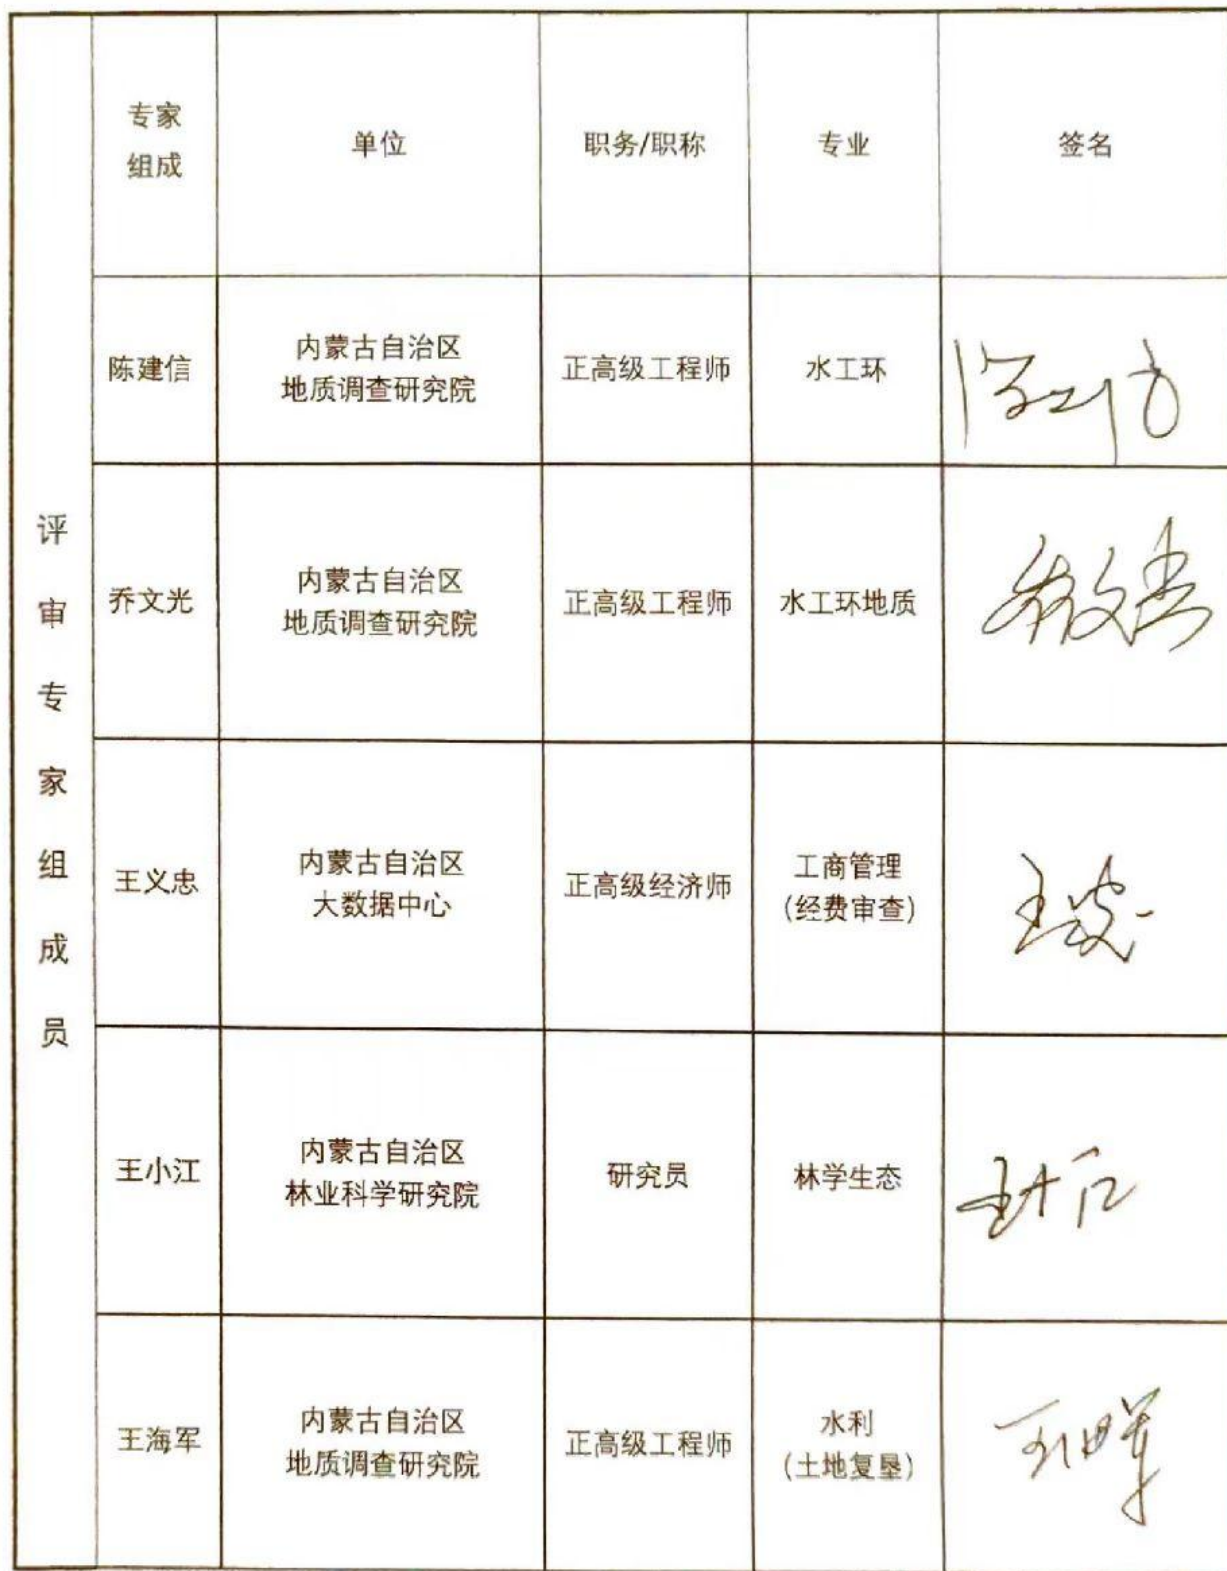 专家
组成
单位
职务/职称
专业
签名
评
审
专
家
组
成
员
陈建信
内蒙古自治区
地质调查研究院
正高级工程师
水工环
乔文光
内蒙古自治区
地质调查研究院
正高级工程师
水工环地质
王义忠
内蒙古自治区
大数据中心
正高级经济师
工商管理
(经费审查)
王小江
内蒙古自治区
林业科学研究院
研究员
林学生态
王海军
内蒙古自治区
地质调查研究院
正高级工程师
水利
(土地复垦)